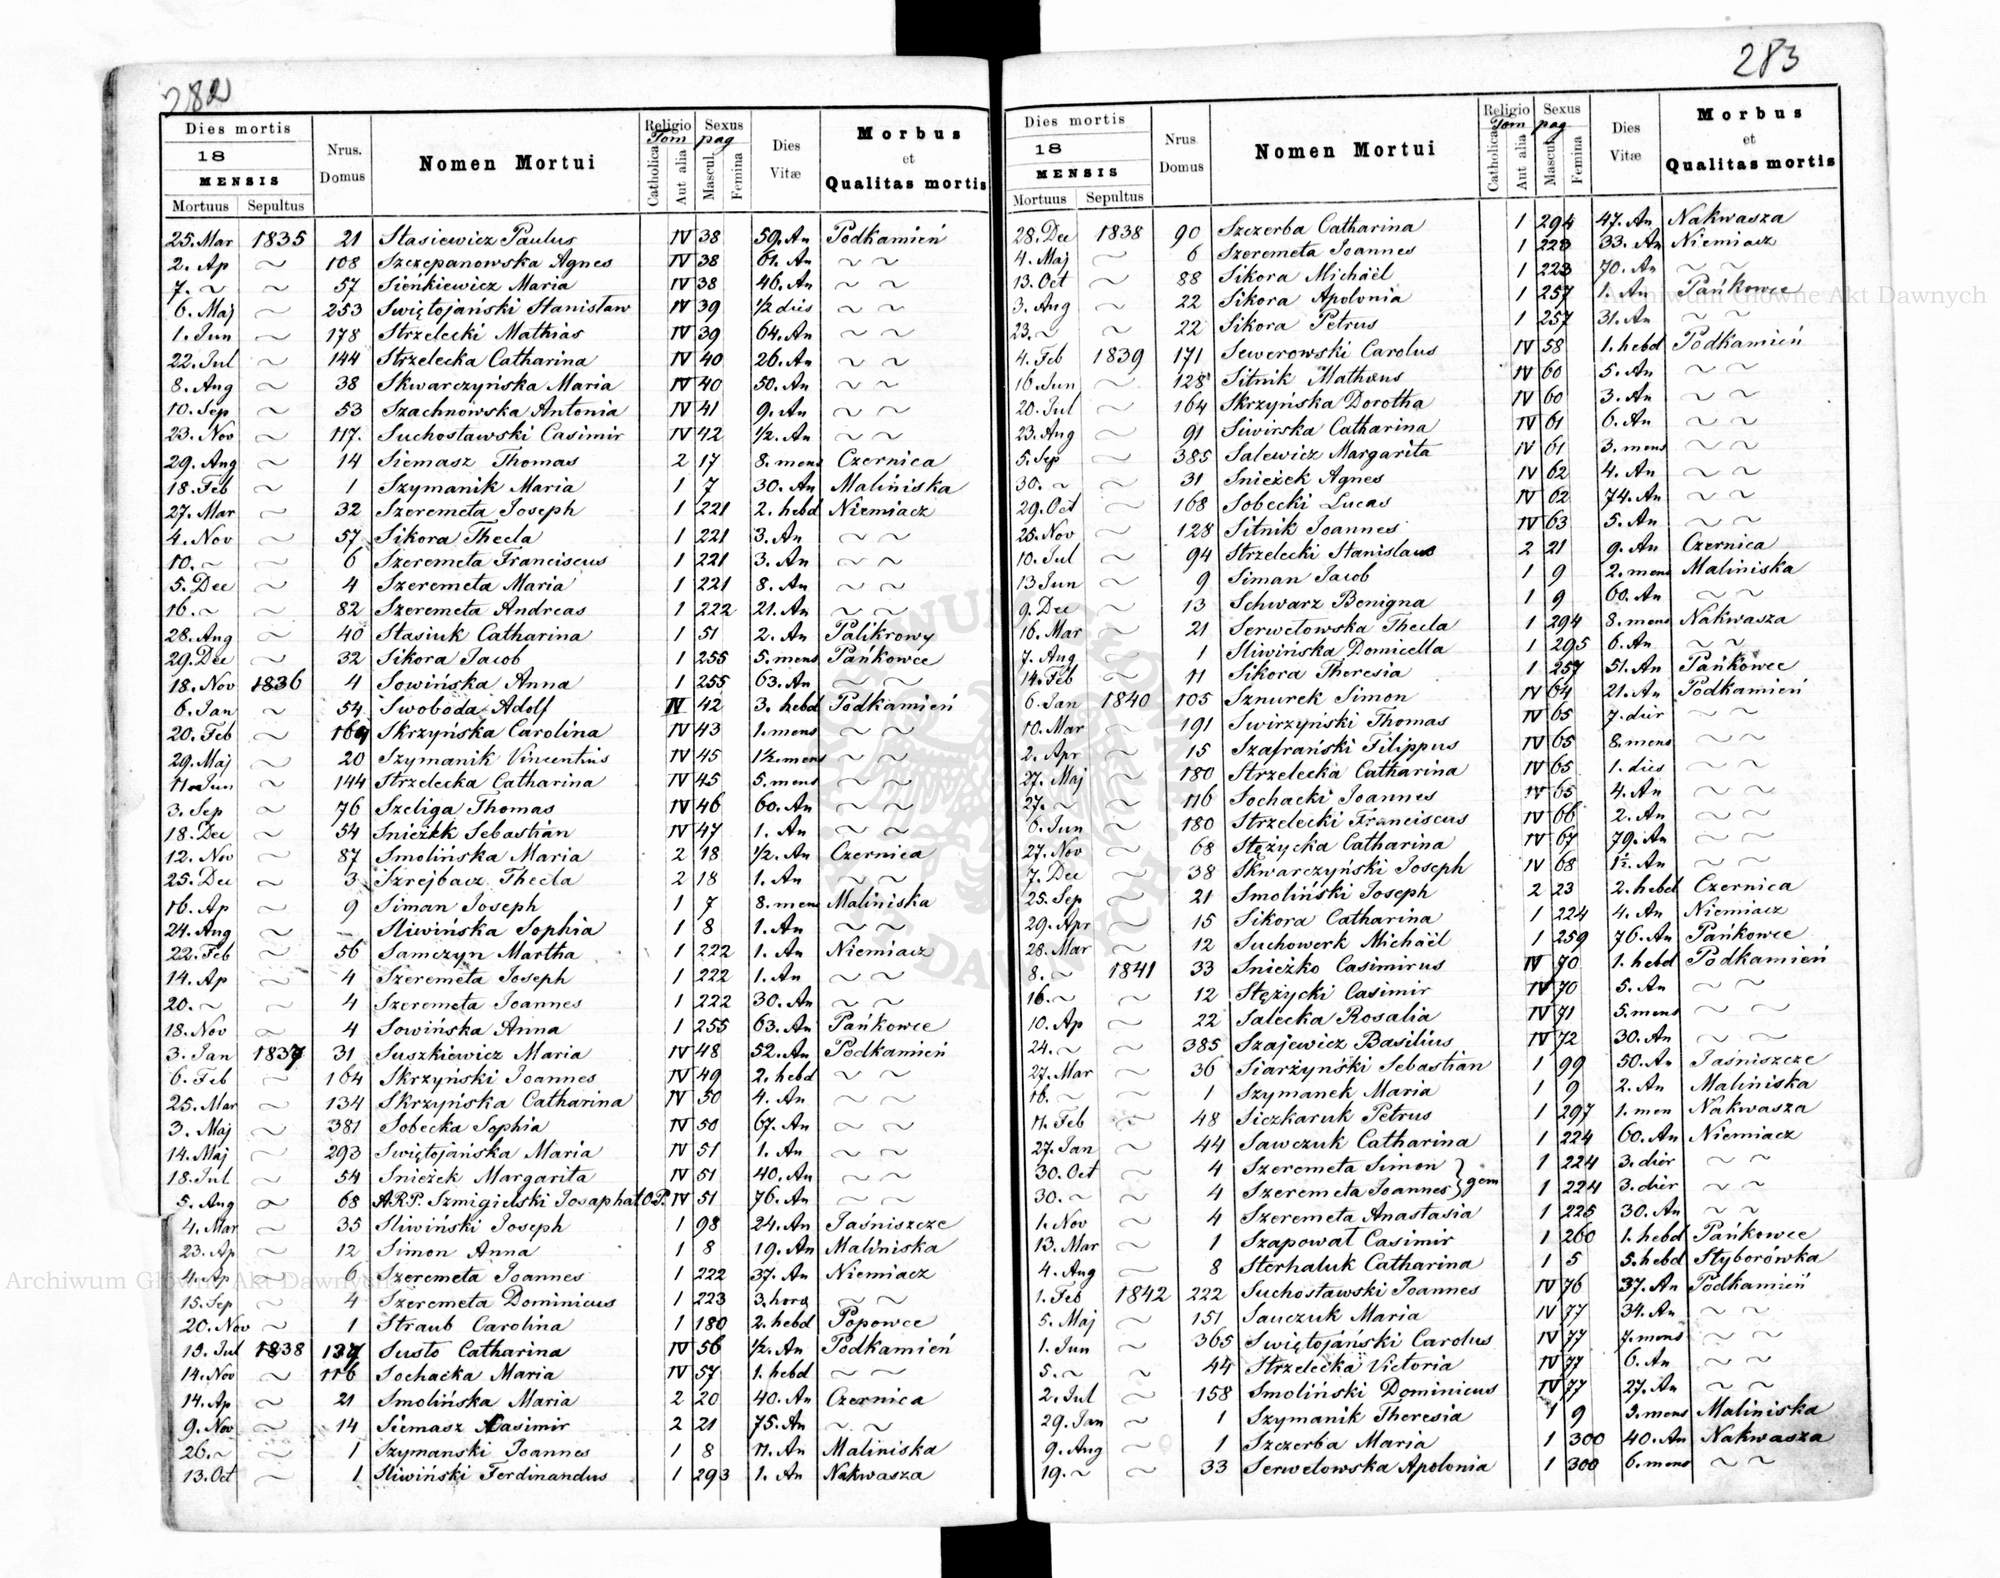 282
Dies mortis
18
MENSIS
Mortuus Sepultus
Nrus. Domus
Nomen Mortui
Religio
Tom
Catholica
Aut alia
Sexus
pag
Mascul.
Femina
Dies Vitæ
Morbus et Qualitas mortis
25. Mar 1835 21 Stasiewicz Paulus IV 38 59. An Podkamień
2. Ap ~ 108 Szczepanowska Agnes IV 38 61. An ~ ~
7. ~ ~ 57 Sieńkiewicz Maria IV 38 46. An ~ ~
6. Maj ~ 253 Swiętojański Stanisław IV 39 ½ dies ~ ~
1. Jun ~ 178 Strzelecki Mathias IV 39 64. An ~ ~
22. Jul ~ 144 Strzelecka Catharina IV 40 26. An ~ ~
8. Aug ~ 38 Skwarczyńska Maria IV 40 50. An ~ ~
10. Sep ~ 53 Szachnowska Antonia IV 41 9. An ~ ~
23. Nov ~ 117. Suchosławski Casimir IV 42 ½. An ~ ~
29. Aug ~ 14 Siemasz Thomas 2 17 8. mens Czernica
18. Feb ~ 1 Szymanik Maria 1 7 30. An Maliniska
27. Mar ~ 32 Szeremeta Joseph 1 221 2. hebd Niemiacz
4. Nov ~ 57 Sikora Thecla 1 221 3. An ~ ~
10. ~ ~ 6 Szeremeta Franciscus 1 221 3. An ~ ~
5. Dec ~ 4 Szeremeta Maria 1 221 8. An ~ ~
16. ~ ~ 82 Szeremeta Andreas 1 222 21. An ~ ~
28. Aug ~ 40 Stasiuk Catharina 1 51 2. An Palikrowy
29. Dec ~ 32 Sikora Jacob 1 255 5. mens Pańkowce
18. Nov 1836 4 Sowińska Anna 1 255 63. An ~ ~
6. Jan ~ 54 Swoboda Adolf IV 42 3. hebd Podkamień
20. Feb ~ 164 Skrzyńska Carolina IV 43 1. mens ~ ~
29. Maj ~ 20 Szymanik Vincentius IV 45 1½. mens ~ ~
11. Jun ~ 144 Strzelecka Catharina IV 45 5. mens ~ ~
3. Sep ~ 76 Szeliga Thomas IV 46 60. An ~ ~
18. Dec ~ 54 Snieżek Sebastian IV 47 1. An ~ ~
12. Nov ~ 87 Smolińska Maria 2 18 ½. An Czernica
25. Dec ~ 3 Szrejbacz Thecla 2 18 1. An ~ ~
16. Ap ~ 9 Siman Joseph 1 7 8. mens Maliniska
24. Aug ~ – Sliwińska Sophia 1 8 1. An ~ ~
22. Feb ~ 56 Samczyn Martha 1 222 1. An Niemiacz
14. Ap ~ 4 Szeremeta Joseph 1 222 1. An ~ ~
20. ~ ~ 4 Szeremeta Joannes 1 222 30. An ~ ~
18. Nov ~ 4 Sowińska Anna 1 255 63. An Pańkowce
3. Jan 1837 31 Suszkiewicz Maria IV 48 52. An Podkamień
6. Feb ~ 164 Skrzyński Joannes IV 49 2. hebd ~ ~
25. Mar ~ 134 Skrzyńska Catharina IV 50 4. An ~ ~
3. Maj ~ 381 Sobecka Sophia IV 50 67. An ~ ~
14. Maj ~ 293 Swiętojańska Maria IV 51 1. An ~ ~
18. Jul ~ 54 Snieżek Margarita IV 51 40. An ~ ~
5. Aug ~ 68 A.R.P. Szmigielski Josaphat O.P. IV 51 76. An ~ ~
4. Mar ~ 35 Sliwiński Joseph 1 98 24. An Jaśniszcze
23. Ap ~ 12 Simon Anna 1 8 19. An Maliniska
4. Ap ~ 6 Szeremeta Joannes 1 222 37. An Niemiacz
15. Sep ~ 4 Szeremeta Dominicus 1 223 3. hora ~ ~
20. Nov ~ 1 Straub Carolina 1 180 2. hebd Popowce
13. Jul 1838 137 Susło Catharina IV 56 ½. An Podkamień
14. Nov ~ 116 Sochacka Maria IV 57 1. hebd ~ ~
14. Ap ~ 21 Smolińska Maria 2 20 40. An Czernica
9. Nov ~ 14 Siemasz Casimir 2 21 75. An ~ ~
26. ~ ~ 1 Szymanski Joannes 1 8 11. An Maliniska
13. Oct ~ 1 Sliwiński Ferdinandus 1 293 1. An Nakwasza
283
Dies mortis
18
MENSIS
Mortuus Sepultus
Nrus Domus
Nomen Mortui
Religio
Tom
Catholica
Aut alia
Sexus
pag
Mascul.
Femina
Dies Vitæ
Morbus et Qualitas mortis
28. Dec 1838 90 Szczerba Catharina 1 294 47. An Nakwasza
4. Maj ~ 6 Szeremeta Joannes 1 223 33. An Niemiacz
13. Oct ~ 88 Sikora Michaël 1 223 70. An ~ ~
3. Aug ~ 22 Sikora Apolonia 1 257 1. An Pańkowce
23. ~ ~ 22 Sikora Petrus 1 257 31. An ~ ~
4. Feb 1839 171 Sewerowski Carolus IV 58 1. hebd Podkamień
16. Jun ~ 128 Sitnik Matheus IV 60 5. An ~ ~
20. Jul ~ 164 Skrzyńska Dorotha IV 60 3. An ~ ~
23. Aug ~ 91 Siwirska Catharina IV 61 6. An ~ ~
5. Sep ~ 385 Salewicz Margarita IV 61 3. mens ~ ~
30. ~ ~ 31 Snieżek Agnes IV 62 4. An ~ ~
29. Oct ~ 168 Sobecki Lucas IV 62 74. An ~ ~
25. Nov ~ 128 Sitnik Joannes IV 63 5. An ~ ~
10. Jul ~ 94 Strzelecki Stanislaus 2 21 9. An Czernica
13 Jun ~ 9 Siman Jacob 1 9 2. mens Maliniska
9. Dec ~ 13 Schwarz Benigna 1 9 60. An ~ ~
16. Mar ~ 21 Serwetowska Thecla 1 294 8. mens Nakwasza
7. Aug ~ 1 Sliwińska Domicella 1 295 6. An ~ ~
14. Feb ~ 11 Sikora Theresia 1 257 51. An Pańkowce
6. Jan 1840 105 Sznurek Simon IV 64 21. An Podkamień
10. Mar ~ 191 Swirzyński Thomas IV 65 7. dier ~ ~
2. Apr ~ 15 Szafrański Filippus IV 65 8. mens ~ ~
27. Maj ~ 180 Strzelecka Catharina IV 65 1. dies ~ ~
27. ~ ~ 116 Sochacki Joannes IV 65 4. An ~ ~
6. Jun ~ 180 Strzelecki Franciscus IV 66 2. An ~ ~
27. Nov ~ 68 Stężycka Catharina IV 67 79. An ~ ~
7. Dec ~ 38 Skwarczyński Joseph IV 68 1½. An ~ ~
25. Sep ~ 21 Smoliński Joseph 2 23 2. hebd Czernica
29. Apr ~ 15 Sikora Catharina 1 224 4. An Niemiacz
28. Mar ~ 12 Suchowerk Michaël 1 259 76. An Pańkowce
8. ~ 1841 33 Snieżko Casimirus IV 70 1. hebd Podkamień
16. ~ ~ 12 Stężycki Casimir IV 70 5. An ~ ~
10. Ap ~ 22 Salecka Rosalia IV 71 5. mens ~ ~
24. ~ ~ 385 Szajewicz Basilius IV 72 30. An ~ ~
27. Mar ~ 36 Siarżyński Sebastian 1 99 50. An Jaśniszcze
16. ~ ~ 1 Szymanek Maria 1 9 2. An Maliniska
11. Feb ~ 48 Siczkaruk Petrus 1 297 1. men Nakwasza
27. Jan ~ 44 Sawczuk Catharina 1 224 60. An Niemiacz
30. Oct ~ 4 Szeremeta Simon } gem 1 224 3. dier ~ ~
30. ~ ~ 4 Szeremeta Joannes 1 224 3. dier ~ ~
1. Nov ~ 4 Szeremeta Anastasia 1 225 30. An ~ ~
13. Mar ~ 1 Szapował Casimir 1 260 1. hebd Pańkowce
4. Aug ~ 8 Sterhaluk Catharina 1 5 5. hebd Styborówka
1. Feb 1842 222 Suchosławski Joannes IV 76 37. An Podkamień
5. Maj ~ 151 Sauczuk Maria IV 77 34. An ~ ~
1. Jun ~ 365 Swiętojański Carolus IV 77 7. mens ~ ~
5. ~ ~ 44 Strzelecka Victoria IV 77 6. An ~ ~
2. Jul ~ 158 Smoliński Dominicus IV 77 27. An ~ ~
29. Jan ~ 1 Szymanik Theresia 1 9 3. mens Maliniska
9. Aug ~ 1 Szczerba Maria 1 300 40. An Nakwasza
19. ~ ~ 33 Serwetowska Apolonia 1 300 6. mens ~ ~
Archiwum Główne Akt Dawnych
Archiwum Główne Akt Dawnych